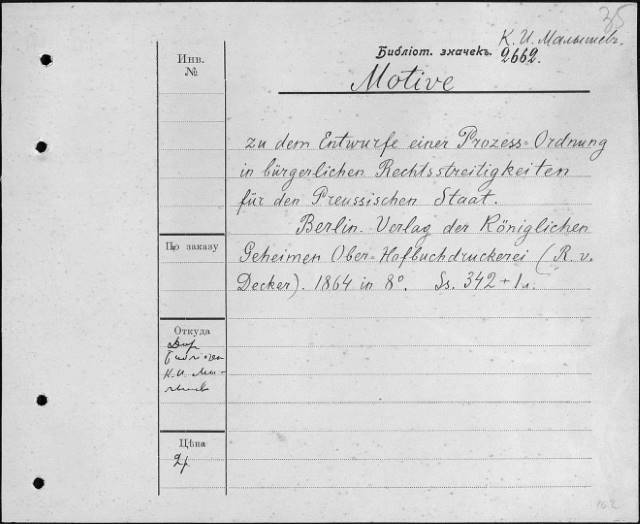 35
К. И. Малышевъ.
Библіот. значекъ. 2662.
Инв.
№
Motive
zu dem Entwurfe einer Prozess-Ordnung
in bürgerlichen Rechtsstreitigkeiten
für den Preussischen Staat.
Berlin. Verlag der Königlichen
По заказу
Geheimen Ober-Hofbuchdruckerei (R. v.
Decker). 1864 in 8°. Ss. 342 + 1 л.
Откуда
К. И. Ма-
Цѣна